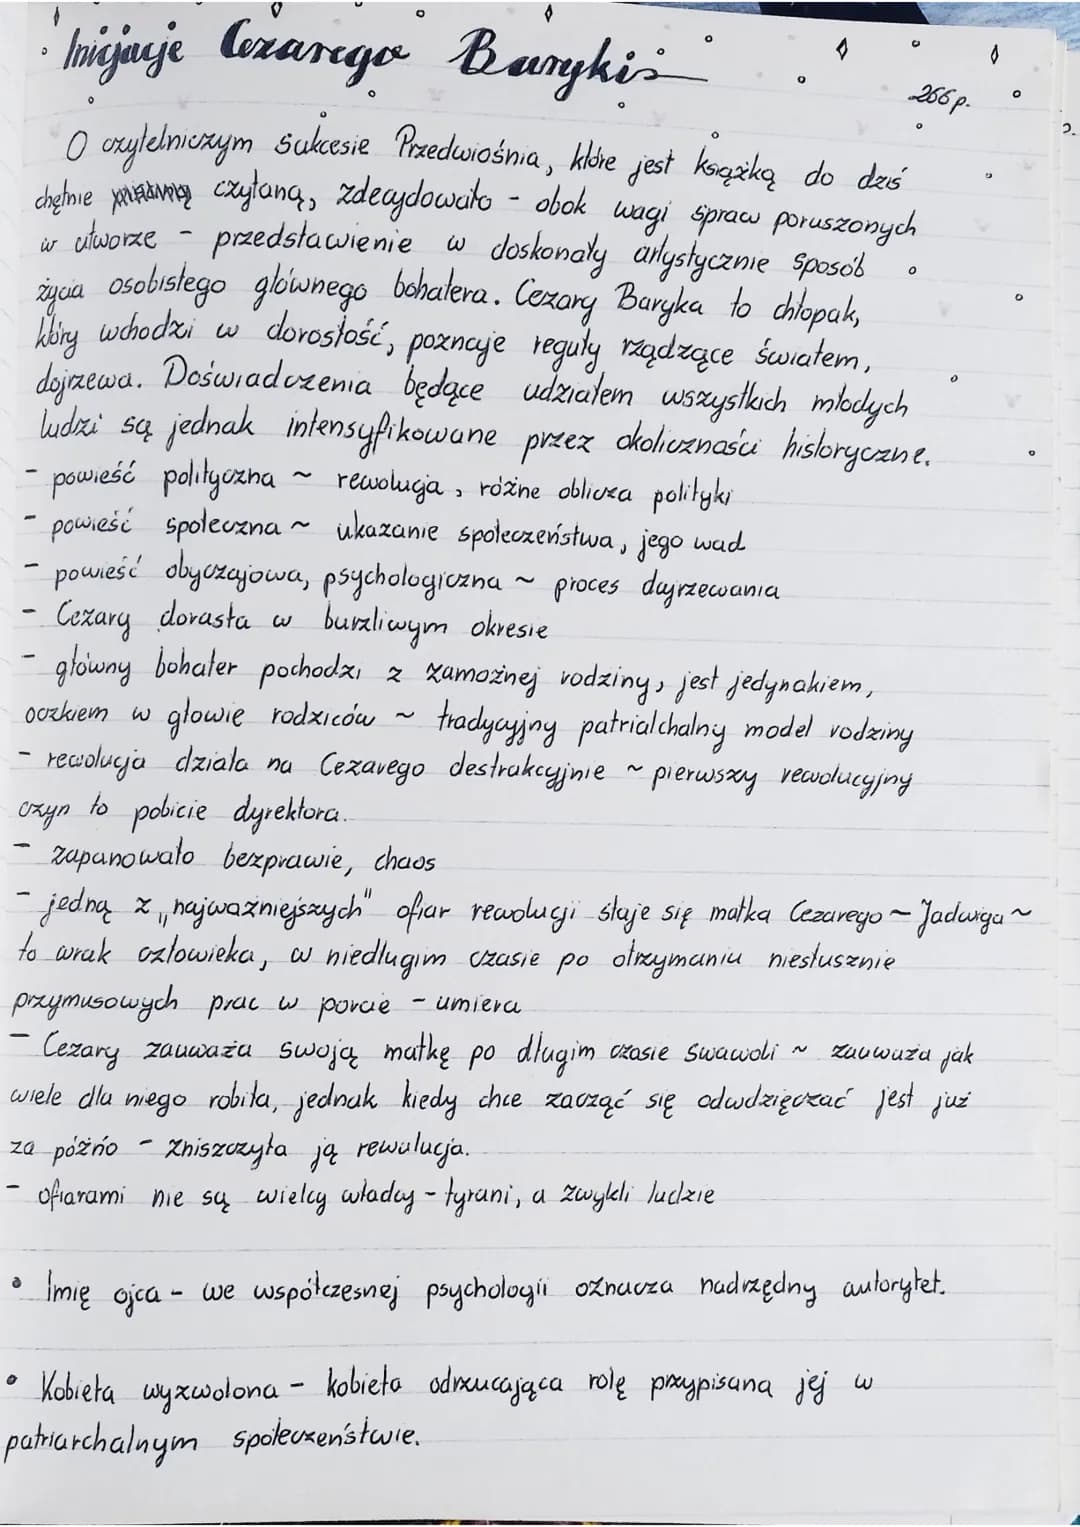 Inicjacje Cezarego Baryki
266 p.
O czytelniczym sukcesie Przedwiośnia, które jest książką do dziś
chętnie czytaną, zdecydowało - obok wagi spraw poruszonych
w utworze - przedstawienie w doskonały artystycznie sposób
życia osobistego głównego bohatera. Cezary Baryka to chłopak,
który wchodzi w dorosłość, poznaje reguły rządzące światem,
dojrzewa. Doświadczenia będące udziałem wszystkich młodych
ludzi są jednak intensyfikowane przez okoliczności historyczne.
- powieść polityczna ~ rewolucja, różne oblicza polityki
- powieść społeczna ~ ukazanie społeczeństwa, jego wad
- powieść obyczajowa, psychologiczna ~ proces dojrzewania
- Cezary dorasta w burzliwym okresie
- główny bohater pochodzi z zamożnej rodziny, jest jedynakiem,
oczkiem w głowie rodziców ~ tradycyjny patrialchalny model rodziny
- rewolucja działa na Cezarego destrakcyjnie ~ pierwszy rewolucyjny
czyn to pobicie dyrektora.
- zapanowało bezprawie, chaos
- jedną z „najważniejszych" ofiar rewolucji staje się matka Cezarego ~ Jadwiga ~
to wrak człowieka, w niedługim czasie po otrzymaniu niesłusznie
przymusowych prac w porcie - umiera
- Cezary zauważa swoją matkę po długim czasie swawoli ~ zauważa jak
wiele dla niego robiła, jednak kiedy chce zacząć się odwdzięczać jest już
za późńo - zniszczyła ją rewolucja.
- ofiarami nie są wielcy władcy - tyrani, a zwykli ludzie
• Imię ojca - we współczesnej psychologii oznacza nadrzędny autorytet.
• Kobieta wyzwolona - kobieta odrzucająca rolę przypisaną jej w
patriarchalnym społeczeństwie.